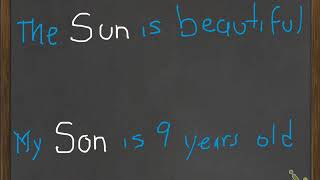 The Sun is beautiful
My Son is 9 years old